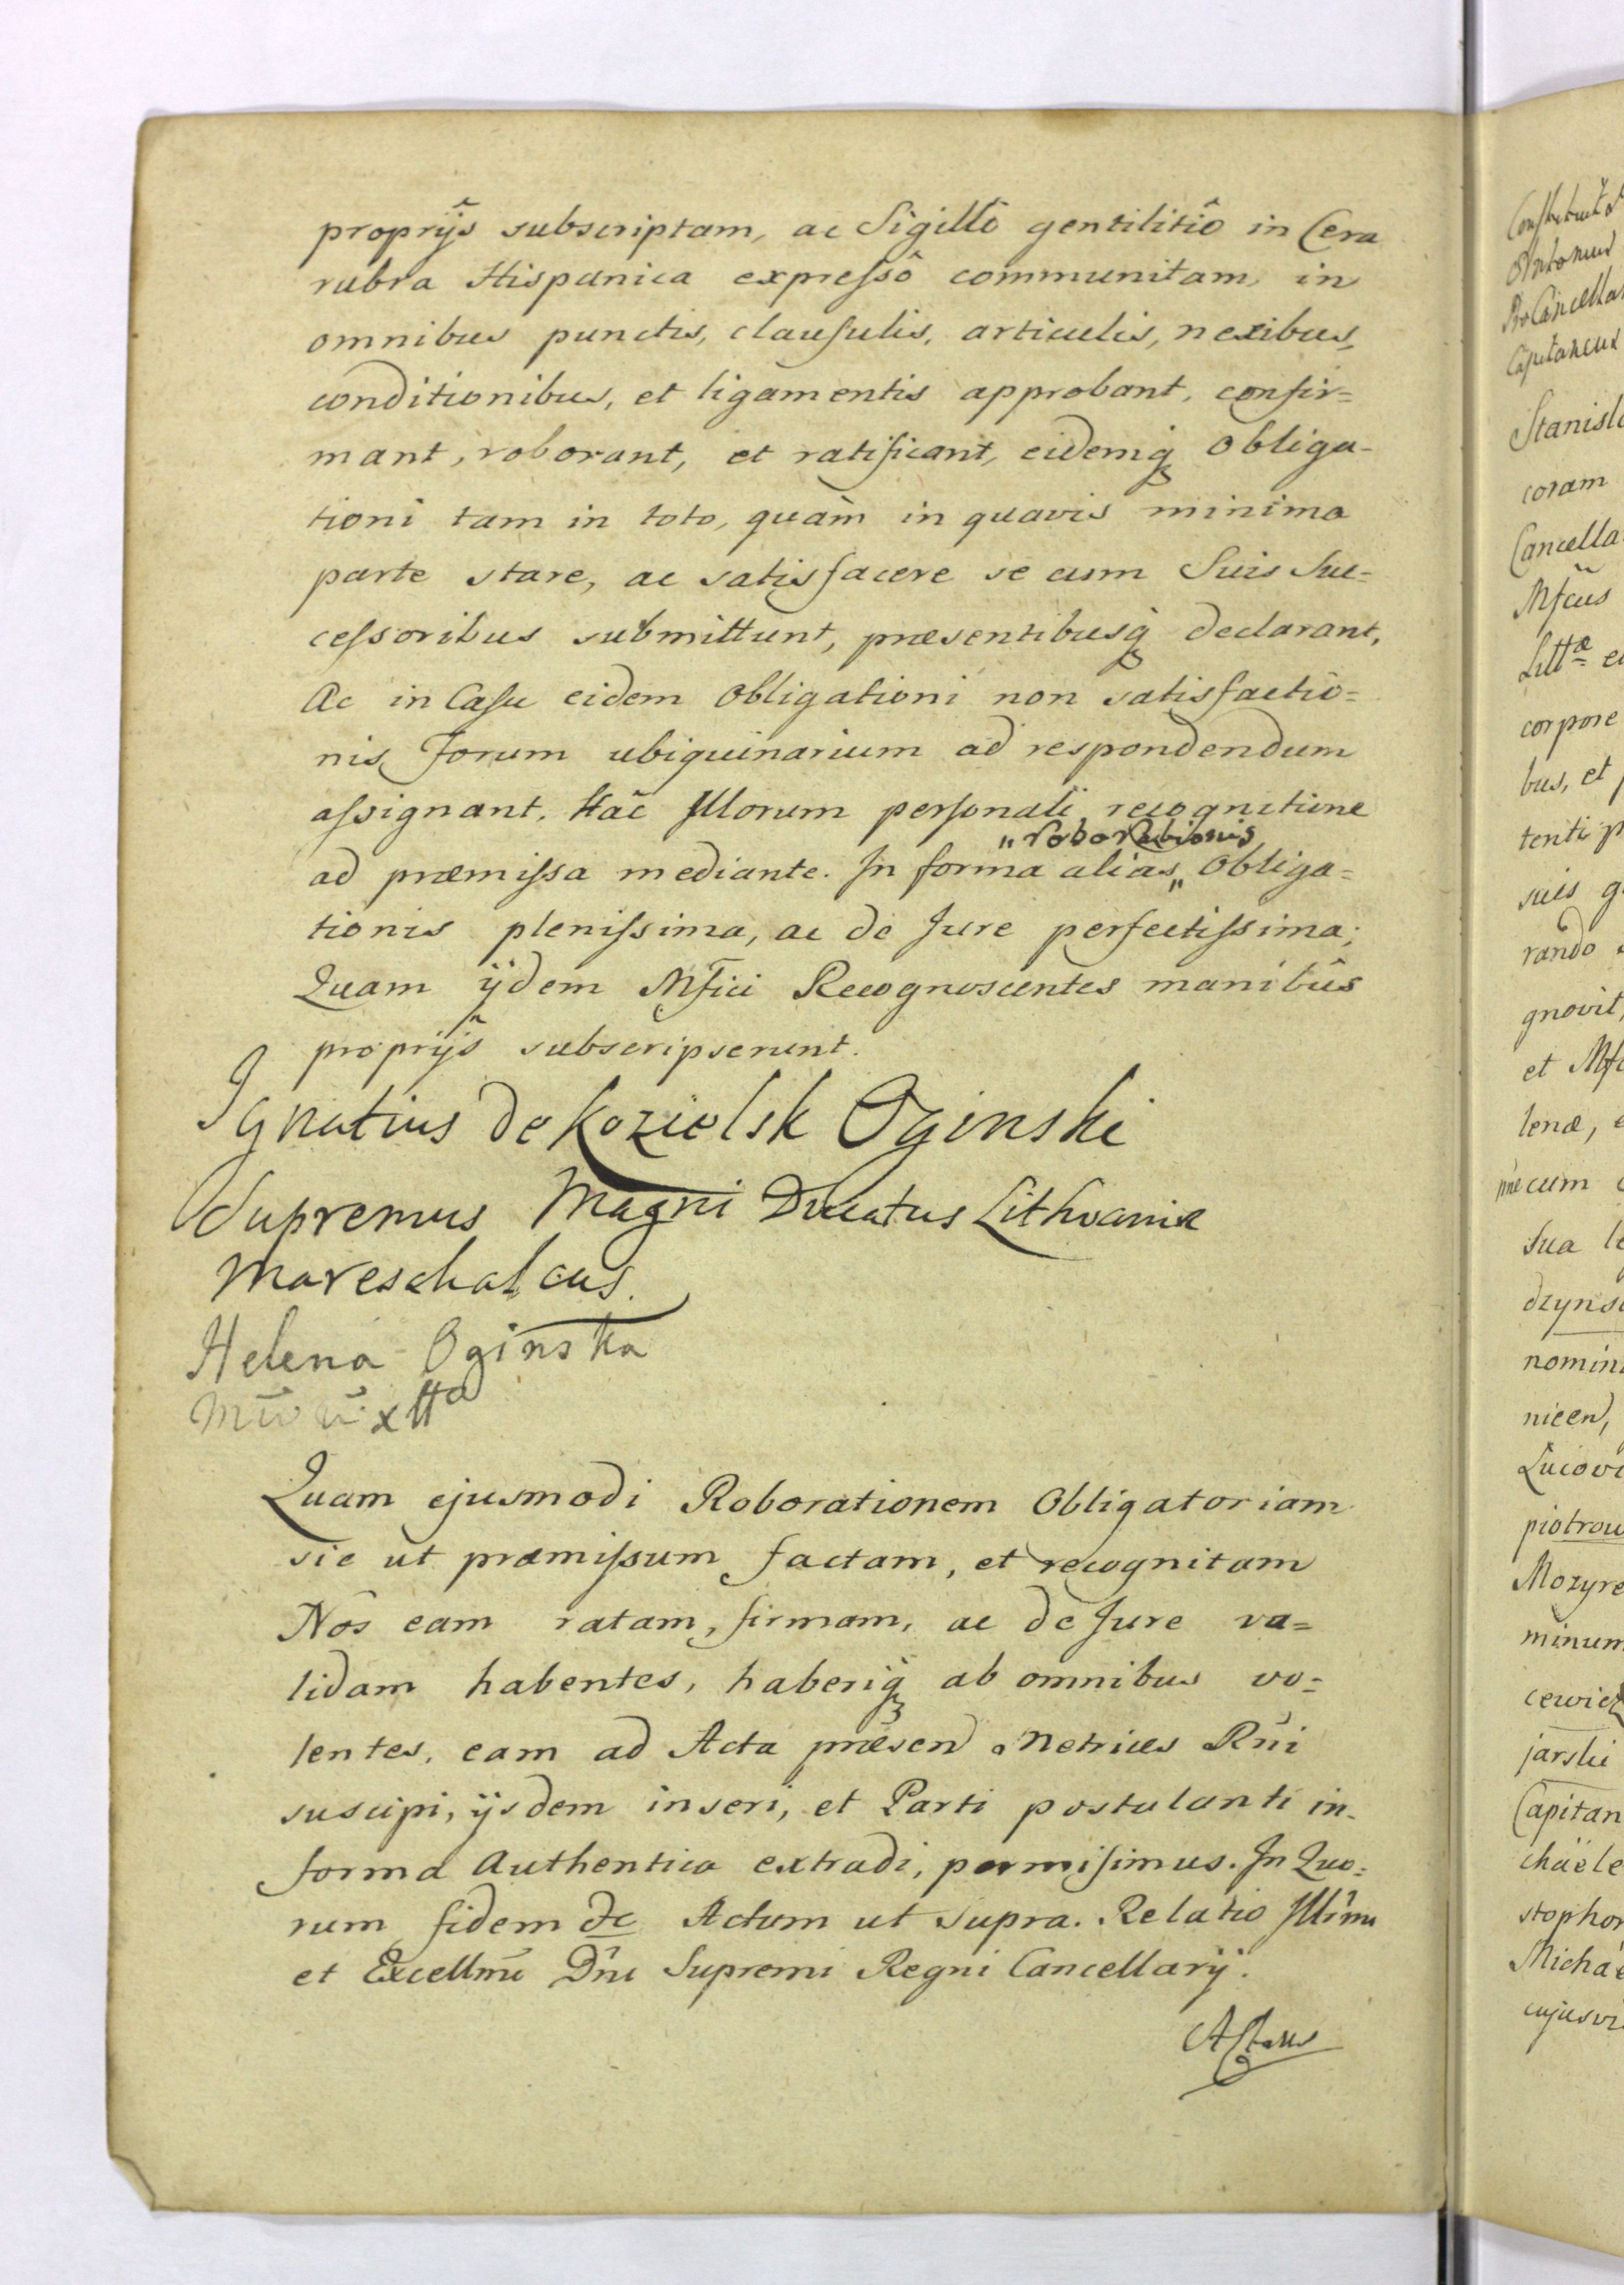 proprijs subscriptam, ac Sigillô gentilitiô in Cera
rubra Hispanica expreſsô communitam, in
omnibus punctis, clauſulis, articulis, nexibus,
conditionibus, et ligamentis approbant, confir=
mant, roborant, et ratificant, eidemq́ Obliga-
tioni tam in toto, quàm in quavis minima
parte stare, ac satisfacere se cum Suis Suc=
ceſsoribus submittunt, præsentibusq́ declarant,
Ac in Caſu eidem Obligationi non satisfactio=
nis Forum ubiquinarium ad respondendum
aſsignant. Hâc Illorum perſonali recognitione
"roborationis
ad præmiſsa mediante. In forma alias„ Obliga=
tionis pleniſsima, ac de Jure perfectiſsima;
Quam ijdem Mfici Recognoscentes manibûs
proprijs subscripserunt.
Ignatius de Kozielsk Oginski
Supremus Magni Ducatus Lithvaniæ
Mareschalcus.
Helena Oginska
Quam ejusmodi Roborationem Obligatoriam
sic ut præmiſsum factam, et recognitam
Nos eam ratam, firmam, ac de Jure va=
lidam habentes, haberiq́ ab omnibus vo=
lentes, eam ad Acta præsen Metrices Rñi
suscipi, ijsdem inseri, et Parti postulanti in
forma Authentica extradi, permiſimus. In Quo=
rum fidem &c Actum ut supra. Relatio Illmi
et Excellmi Dñi Supremi Regni Cancellarij.
Stanisl
coram
Cancella
Mfcus
corpore
bus, et
tenti p
suis g
rando
gnovit,
et Mf
lenæ, e
cum
sua le
nomin
nicen,
piotrow
Mozyre
minum
cewicz
jarski
Capitan
chaële
stophor
Michaë
cujusvi